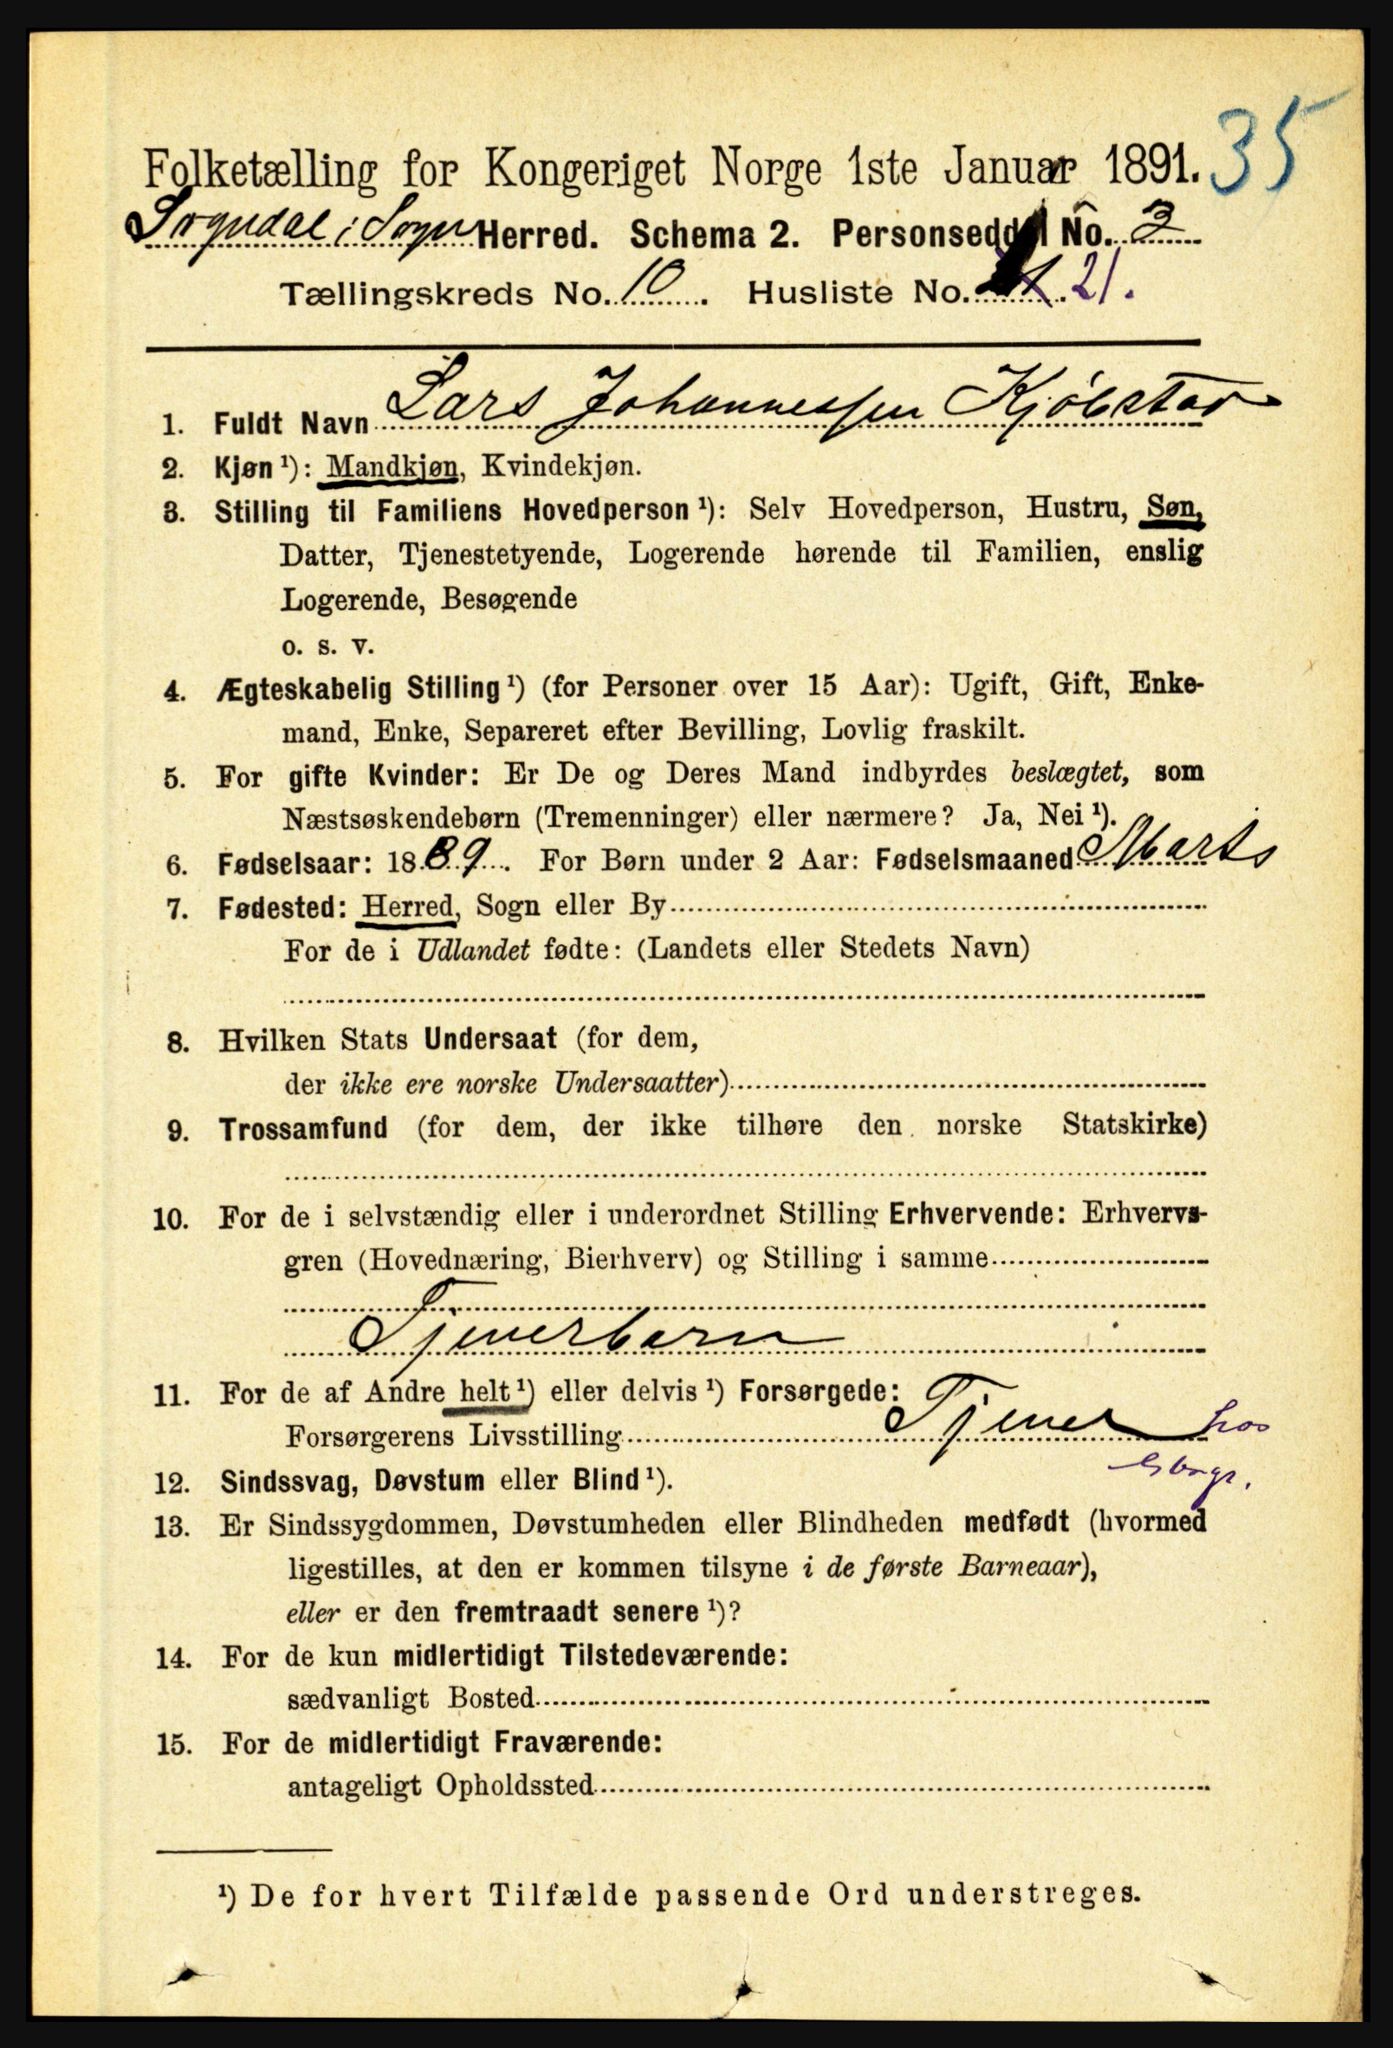 35
Folketælling for Kongeriget Norge 1ste Januar 1891.
Sogndal i Sogn Herred. Schema 2. Personseddel No. 3
Tællingskreds No. 10. Husliste No. 21.
1. Fuldt Navn Lars Johannessen Kjøbstad
2. Kjøn ¹): Mandkjøn, Kvindekjøn.
3. Stilling til Familiens Hovedperson ¹): Selv Hovedperson, Hustru, Søn,
Datter, Tjenestetyende, Logerende hørende til Familien, enslig
Logerende, Besøgende
o. s. v.
4. Ægteskabelig Stilling ¹) (for Personer over 15 Aar): Ugift, Gift, Enke-
mand, Enke, Separeret efter Bevilling, Lovlig fraskilt.
5. For gifte Kvinder: Er De og Deres Mand indbyrdes beslægtet, som
Næstsøskendebørn (Tremenninger) eller nærmere? Ja, Nei ¹).
6. Fødselsaar: 1889. For Børn under 2 Aar: Fødselsmaaned Marts
7. Fødested: Herred, Sogn eller By
For de i Udlandet fødte: (Landets eller Stedets Navn)
8. Hvilken Stats Undersaat (for dem,
der ikke ere norske Undersaatter)
9. Trossamfund (for dem, der ikke tilhøre den norske Statskirke)
10. For de i selvstændig eller i underordnet Stilling Erhvervende: Erhvervs-
gren (Hovednæring, Bierhverv) og Stilling i samme
Tjenerbarn
11. For de af Andre helt ¹) eller delvis ¹) Forsørgede:
Forsørgerens Livsstilling Tjener hos
12. Sindssvag, Døvstum eller Blind ¹).
13. Er Sindssygdommen, Døvstumheden eller Blindheden medfødt (hvormed
ligestilles, at den er kommen tilsyne i de første Barneaar),
eller er den fremtraadt senere ¹)?
14. For de kun midlertidigt Tilstedeværende:
sædvanligt Bosted
15. For de midlertidigt Fraværende:
antageligt Opholdssted
¹) De for hvert Tilfælde passende Ord understreges.